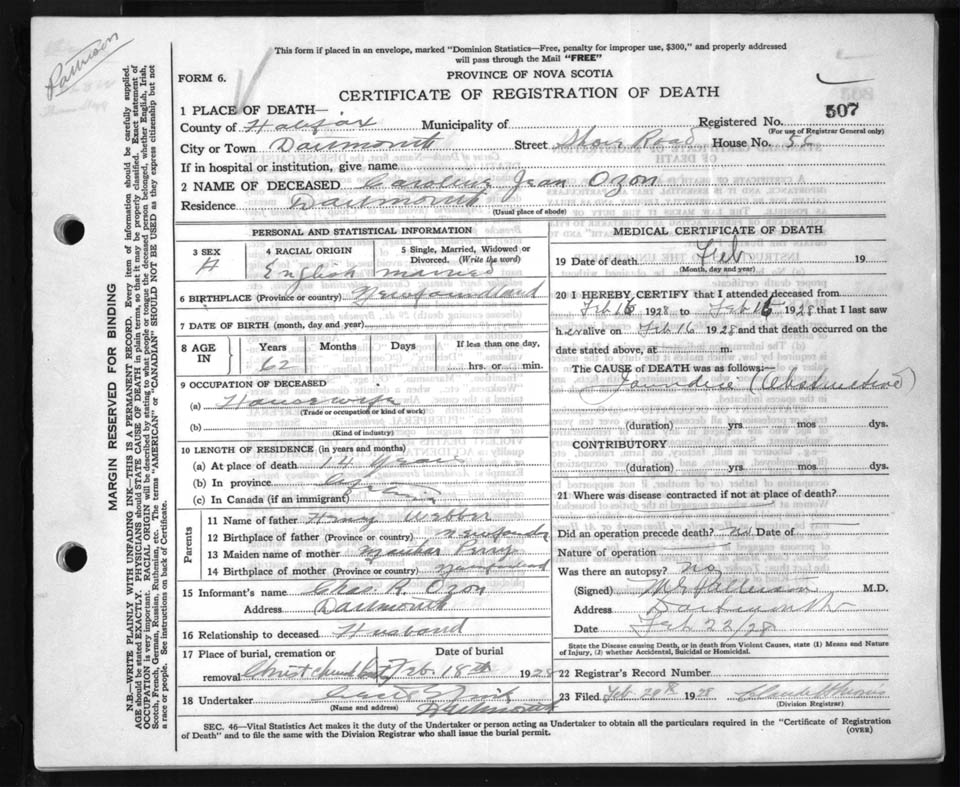 Pattison
This form if placed in an envelope, marked "Dominion Statistics—Free, penalty for improper use, $300," and properly addressed
will pass through the Mail "FREE"
FORM 6.
PROVINCE OF NOVA SCOTIA
CERTIFICATE OF REGISTRATION OF DEATH
507
1 PLACE OF DEATH—
County of Halifax Municipality of Registered No.
(For use of Registrar General only)
City or Town Dartmouth Street Shore Road House No. 56
If in hospital or institution, give name
2 NAME OF DECEASED Caroline Jean Ozon
Residence Dartmouth
(Usual place of abode)
PERSONAL AND STATISTICAL INFORMATION
3 SEX 4 RACIAL ORIGIN 5 Single, Married, Widowed or Divorced. (Write the word)
English married
6 BIRTHPLACE (Province or country) Newfoundland
7 DATE OF BIRTH (month, day and year)
8 AGE IN Years Months Days If less than one day,
62 hrs. or min.
9 OCCUPATION OF DECEASED
(a) Housewife
(Trade or occupation or kind of work)
(b)
(Kind of industry)
10 LENGTH OF RESIDENCE (in years and months)
(a) At place of death 14 years
(b) In province
(c) In Canada (if an immigrant)
Parents
11 Name of father Henry Webber
12 Birthplace of father (Province or country) Newfoundl
13 Maiden name of mother Perry
14 Birthplace of mother (Province or country) Newfoundland
15 Informant's name Chas. R. Ozon
Address Dartmouth
16 Relationship to deceased Husband
17 Place of burial, cremation or removal Date of burial
Christ Church Feb 18th 1928
18 Undertaker
(Name and address) Dartmouth
MEDICAL CERTIFICATE OF DEATH
19 Date of death Feb 19
(Month, day and year)
20 I HEREBY CERTIFY that I attended deceased from
Feb 16 1928 to Feb 16 1928 that I last saw
her alive on Feb 16 1928 and that death occurred on the
date stated above, at m.
The CAUSE of DEATH was as follows:—
Jaundice (Obstructive)
(duration) yrs. mos dys.
CONTRIBUTORY
(duration) yrs mos dys.
21 Where was disease contracted if not at place of death?
Did an operation precede death? No Date of
Nature of operation
Was there an autopsy? no
(Signed) M.D.
Address Dartmouth
Date Feb 22/28
State the Disease causing Death, or in death from Violent Causes, state (1) Means and Nature
of Injury, (2) whether Accidental, Suicidal or Homicidal.
22 Registrar's Record Number
23 Filed Feb 1928
(Division Registrar)
SEC. 46—Vital Statistics Act makes it the duty of the Undertaker or person acting as Undertaker to obtain all the particulars required in the "Certificate of Registration
of Death" and to file the same with the Division Registrar who shall issue the burial permit.
(OVER)
MARGIN RESERVED FOR BINDING
N.B.—WRITE PLAINLY WITH UNFADING INK—THIS IS A PERMANENT RECORD. Every item of information should be carefully supplied.
AGE should be stated EXACTLY. PHYSICIANS should STATE CAUSE OF DEATH in plain terms, so that it may be properly classified. Exact statement of
OCCUPATION is very important. RACIAL ORIGIN will be described by stating to what people or tongue the deceased person belonged, whether English, Irish,
Scotch, French, German, Russian, Ruthenian, etc. The terms "AMERICAN" or "CANADIAN" SHOULD NOT BE USED as they express citizenship but not
a race or people. See instructions on back of Certificate.